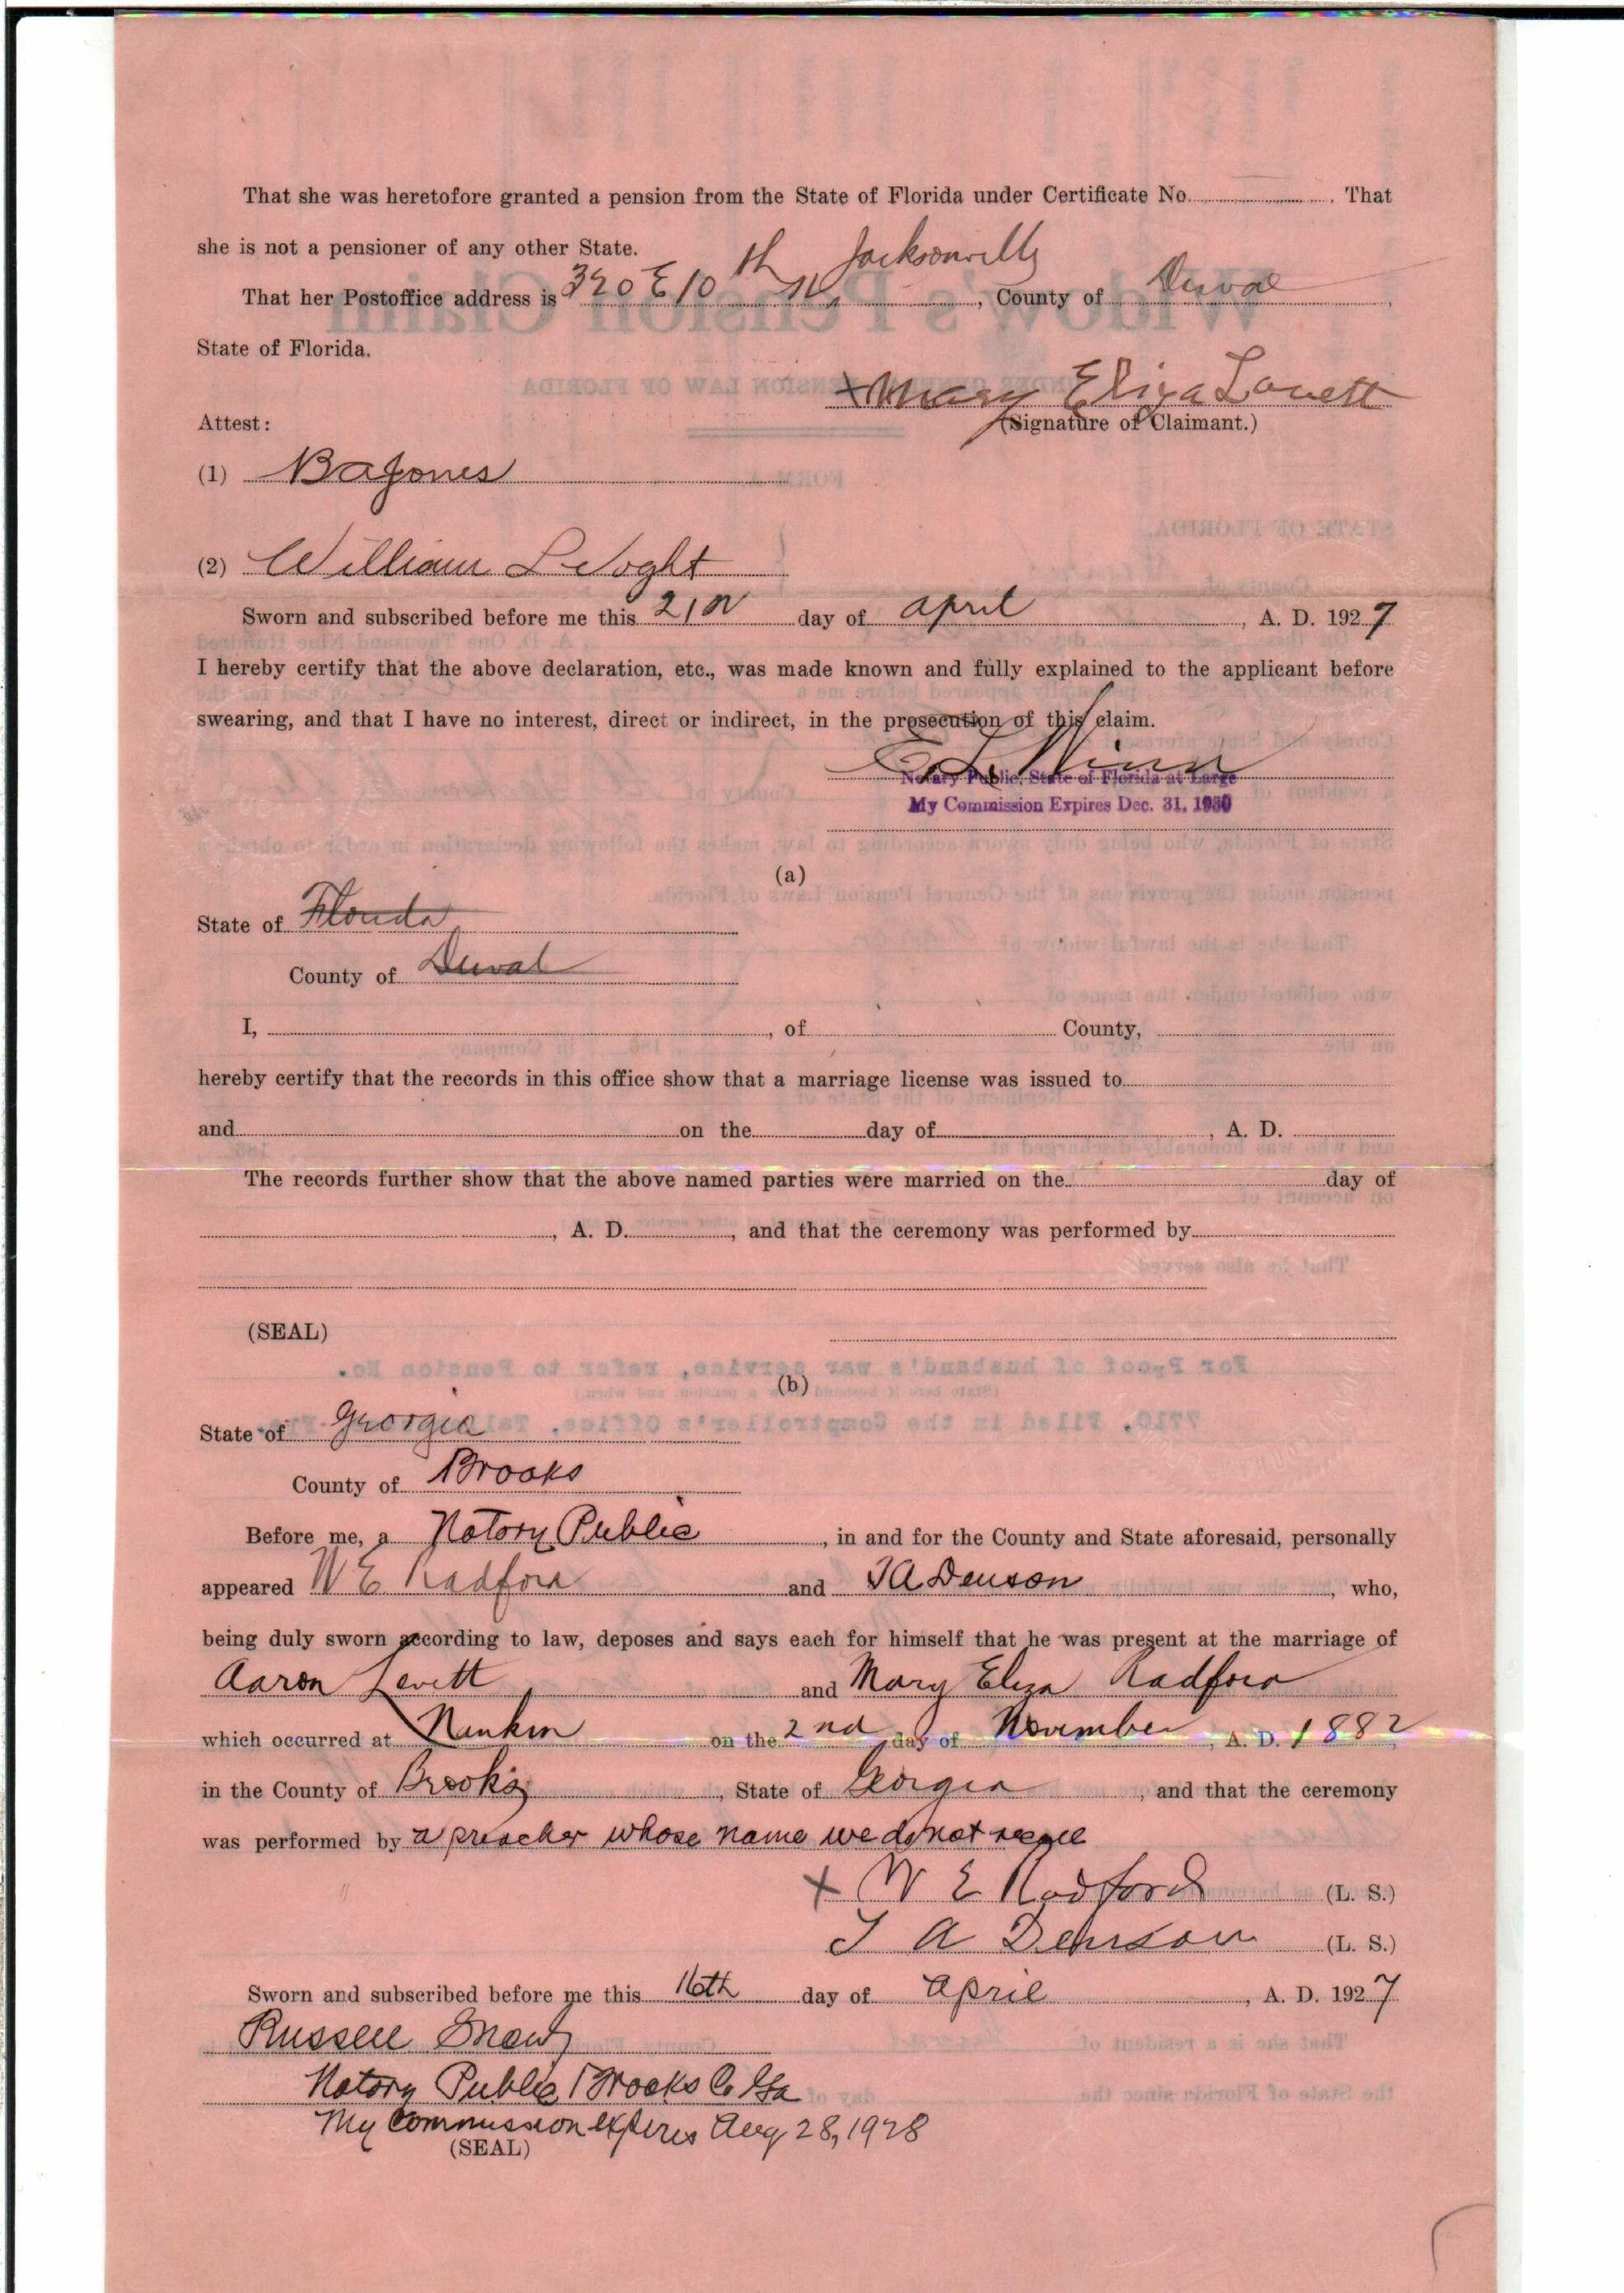 That she was heretofore granted a pension from the State of Florida under Certificate No. . That
she is not a pensioner of any other State.
That her Postoffice address is 320 E 10th St, Jacksonville, County of Duval,
State of Florida.
Mary Eliza Lovett
Attest: (Signature of Claimant.)
(1) B A Jones
(2) William L
Sworn and subscribed before me this 21 day of april, A. D. 1927
I hereby certify that the above declaration, etc., was made known and fully explained to the applicant before
swearing, and that I have no interest, direct or indirect, in the prosecution of this claim.
E L Winn
Notary Public, State of Florida at Large
My Commission Expires Dec. 31, 1930
(a)
State of Florida
County of Duval
I, , of County,
hereby certify that the records in this office show that a marriage license was issued to
and on the day of , A. D.
The records further show that the above named parties were married on the day of
, A. D. , and that the ceremony was performed by
(SEAL)
(b)
State of Georgia
County of Brooks
Before me, a Notory Public, in and for the County and State aforesaid, personally
appeared W E Radford and T A Denson, who,
being duly sworn according to law, deposes and says each for himself that he was present at the marriage of
Aaron Levett and Mary Eliza Radford
which occurred at Nankin on the 2nd day of November, A. D. 1882
in the County of Brooks, State of Georgia, and that the ceremony
was performed by a preacher whose name we do not recall
X W E Radford (L. S.)
T A Denson (L. S.)
Sworn and subscribed before me this 16th day of april, A. D. 1927
Russell
Notory Public Brooks Co Ga
My Commission expires Aug 28, 1928
(SEAL)